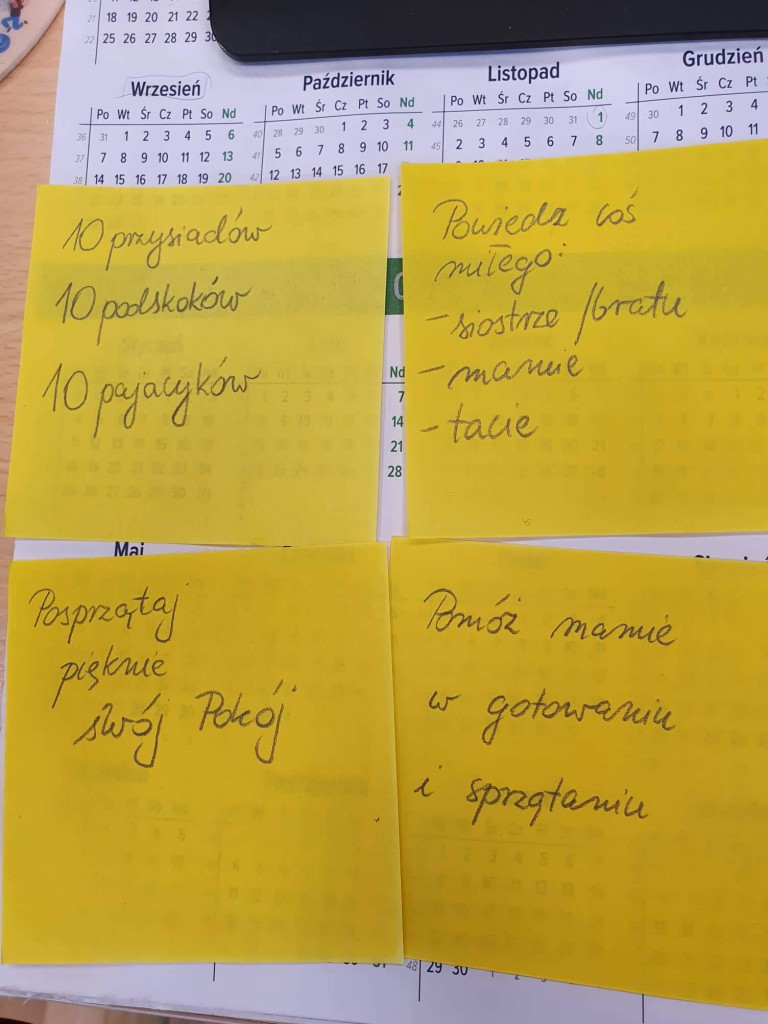 21 18 19 20 21 22
22 25 26 27 28 29 30
Wrzesień
Po Wt Śr Cz Pt So Nd
36 31 1 2 3 4 5 6
37 7 8 9 10 11 12 13
38 14 15 16 17 18 19 20
Październik
Po Wt Śr Cz Pt So Nd
40 28 29 30 1 2 3 4
41 5 6 7 8 9 10 11
42 12 13 14 15 16 17
Listopad
Po Wt Śr Cz Pt So Nd
44 26 27 28 29 30 31 1
45 2 3 4 5 6 7 8
Grudzień
Po Wt Śr Cz Pt
49 30 1 2 3 4
50 7 8 9 10 11
10 przysiadów
10 podskoków
10 pajacyków
Powiedz coś
miłego:
- siostrze / bratu
- mamie
- tacie
Nd
7
14
21
28
Maj
Posprzątaj
pięknie
swój Pokój
Pomóż mamie
w gotowaniu
i sprzątaniu
48 29 30